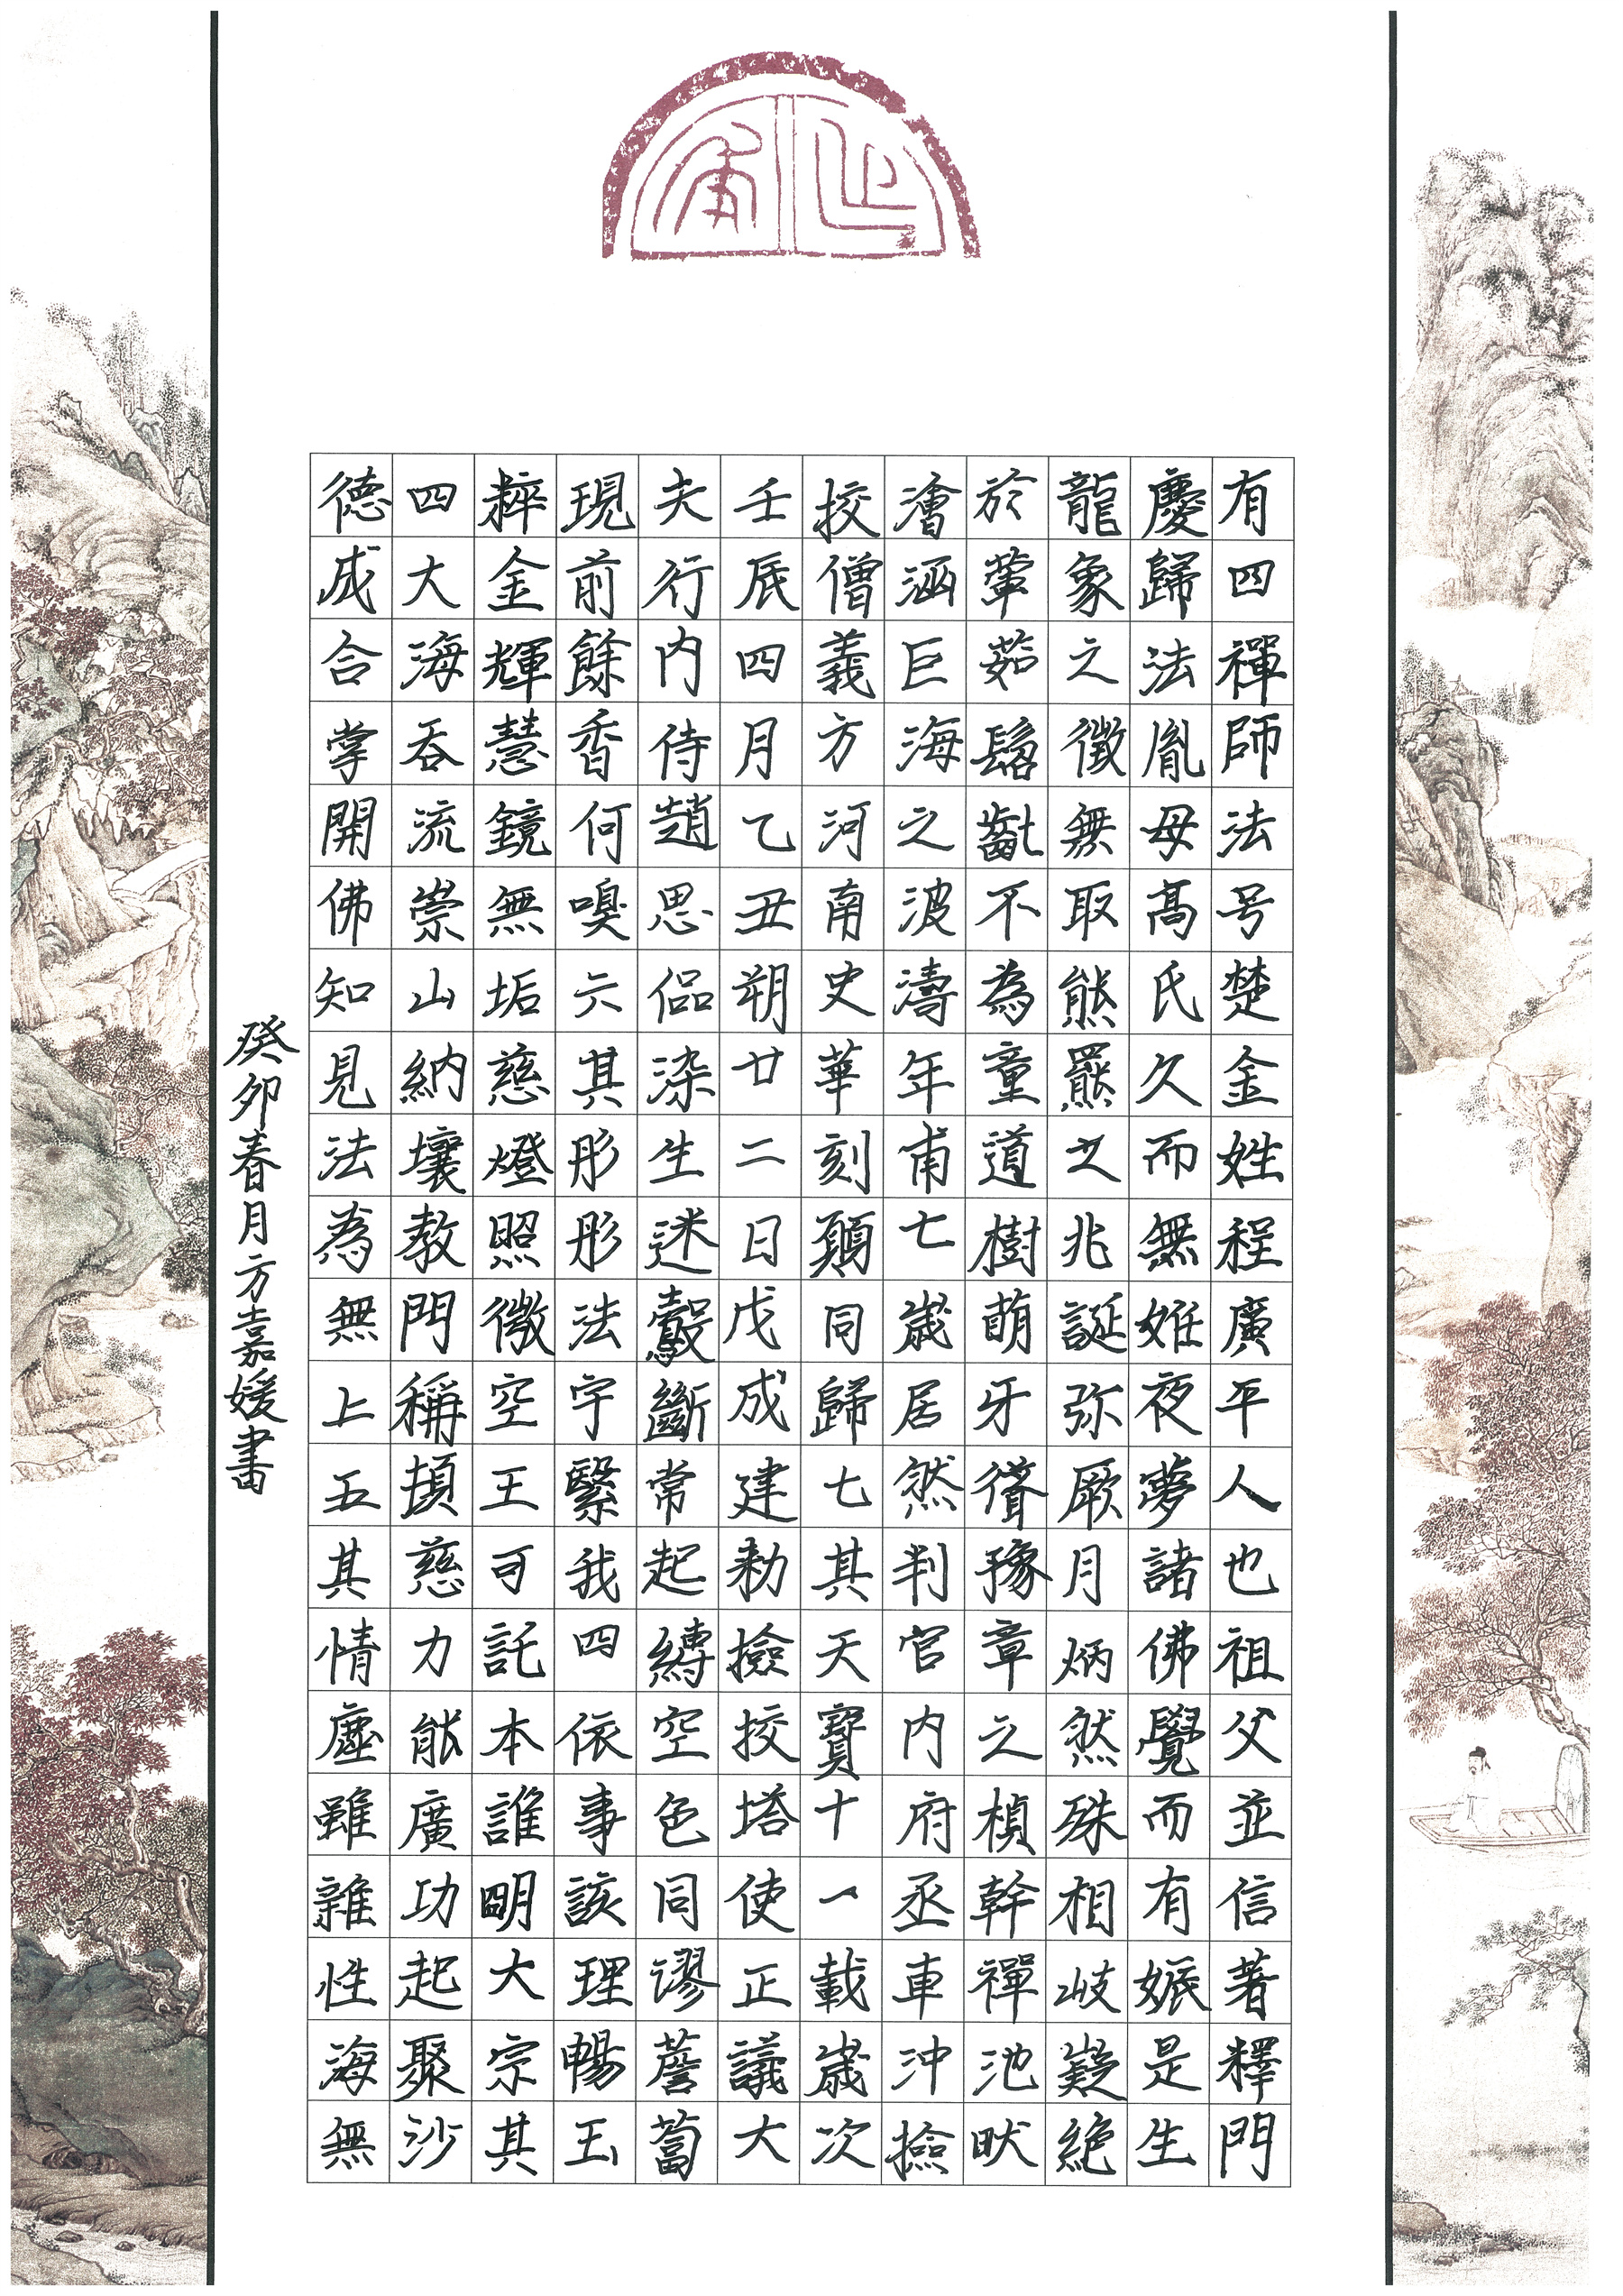 有四禪師法号楚金姓程廣平人也祖父並信著釋門
慶歸法胤母高氏久而無姙夜夢諸佛覺而有娠是生
龍象之徵無取熊羆之兆誕弥厥月炳然殊相岐嶷絕
於葷茹髫齓不為童道樹萌牙聳豫章之楨幹禪池畎
澮涵巨海之波濤年甫七歲居然判官內府丞車沖撿
挍僧義方河南史華刻願同歸七其天寶十一載歲次
壬辰四月乙丑朔廿二日戊戌建勑撿挍塔使正議大
夫行內侍趙思侃染生迷鷇斷常起縛空色同謬薝蔔
現前餘香何嗅六其彤彤法宇繄我四依事該理暢玉
粹金輝慧鏡無垢慈燈照微空王可託本誰明大宗其
四大海吞流崇山納壤教門稱頓慈力能廣功起聚沙
德成合掌開佛知見法為無上五其情塵雖雜性海無
癸卯春月方嘉媛書